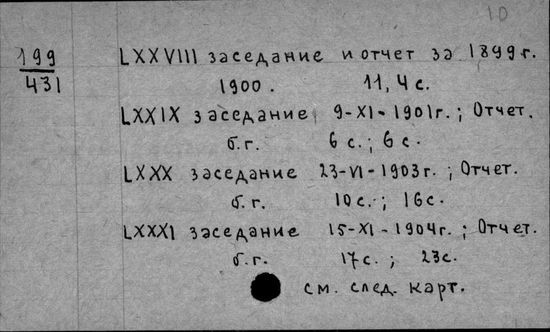 10
199
431
LXXVIII заседание и отчет за 1899 г.
1900. 11, 4 с.
LXXIX заседание 9-XI-1901г.; Отчет.
б.г. 6 с.; 6 с.
LXXX заседание 23-VI-1903г.; Отчет.
б.г. 10с.; 16с.
LXXXI заседание 15-XI-1904г.; Отчет.
б.г. 17с.; 23с.
см. след. карт.